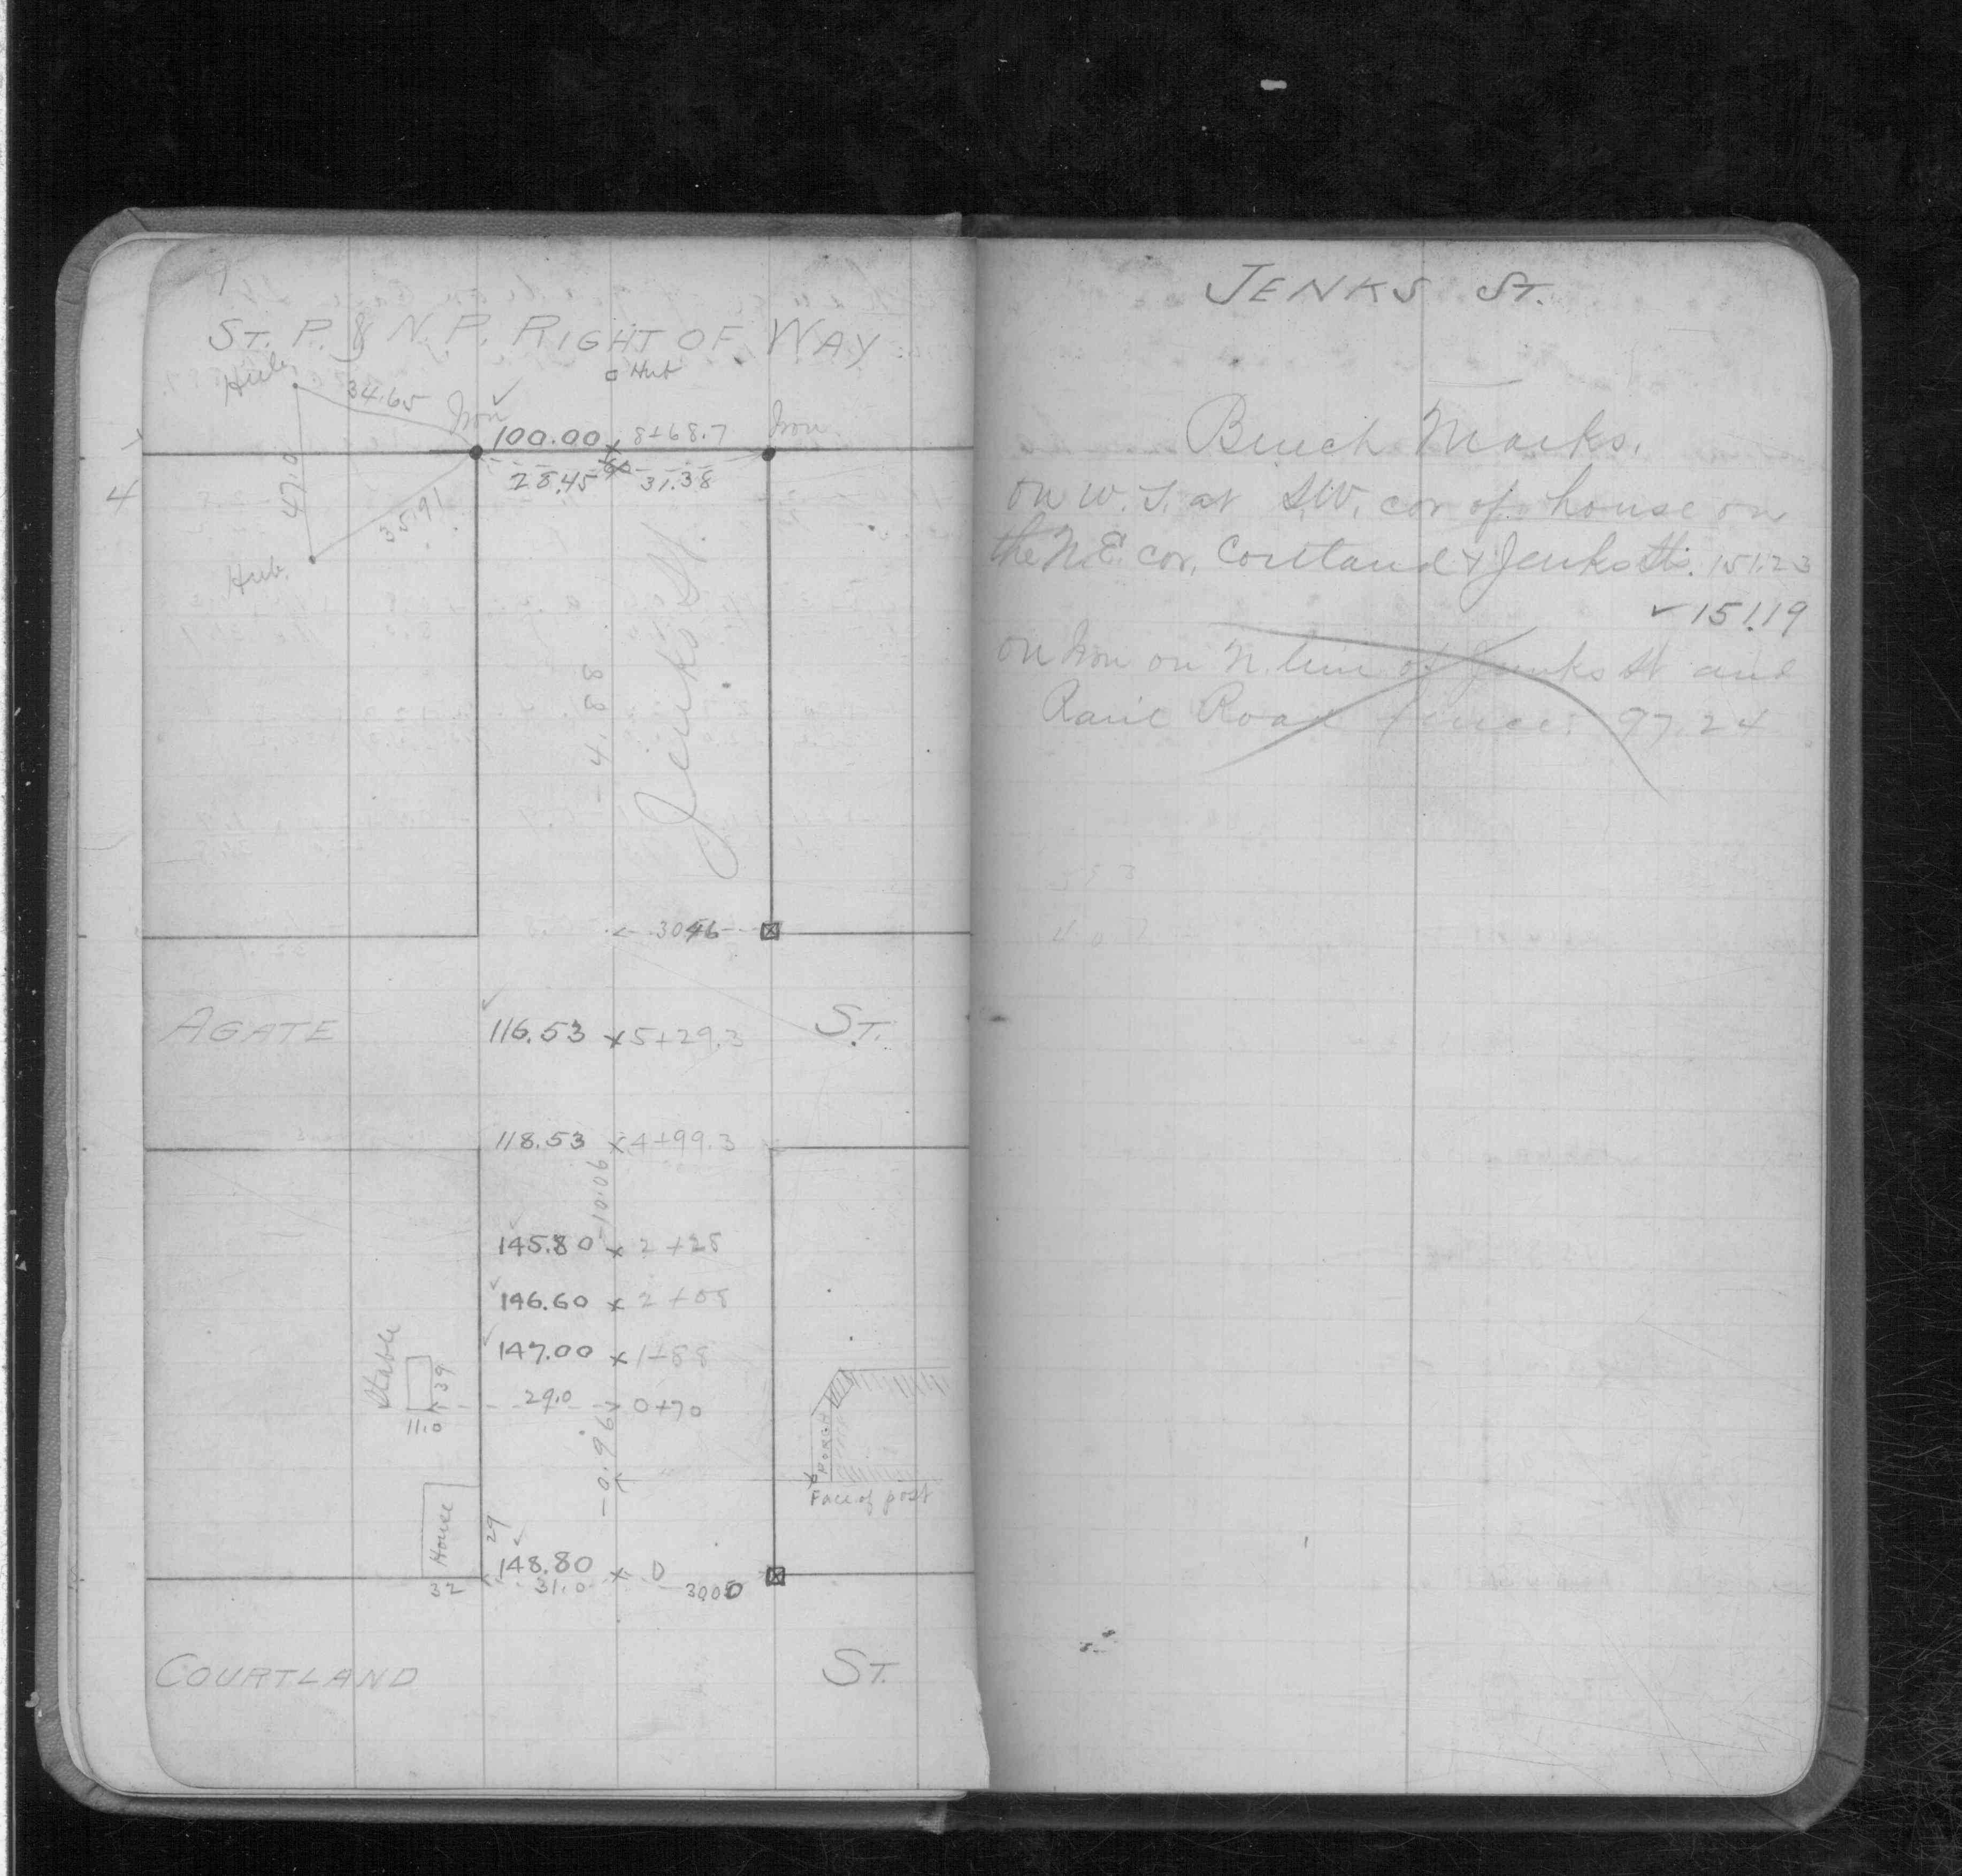 ST. P. & N. P. RIGHT OF WAY
Hub
Hub
34.65
Iron
100.00 x 8+68.7
Iron
28.45
31.38
4
47.0
35.91
Hub.
Jenks St.
- 4.88
3046
AGATE
116.53 x 5+29.3
ST.
118.53 x 4+99.3
-10.06
145.80 x 2+28
146.60 x 2+08
147.00 x 1+88
Stable
39
29.0
0+70
11.0
-0.96
PORCH
Face of post
House
29
148.80 x 0
32
31.0
3000
COURTLAND
ST.
JENKS ST.
Bench Marks.
on W. T. at S.W. cor of house on
the N.E. cor. Cortland & Jenks Sts. 151.23
✓ 151.19
on Iron on N. line of Jenks St and
Rail Road fence: 97.24